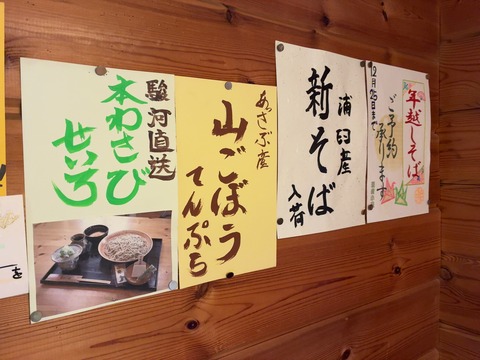 年越しそば
ご予約
承ります
12月25日まで
浦臼産
新そば
入荷
あっさぶ産
山ごぼう
てんぷら
駿河直送
本わさび
せいろ
!
を